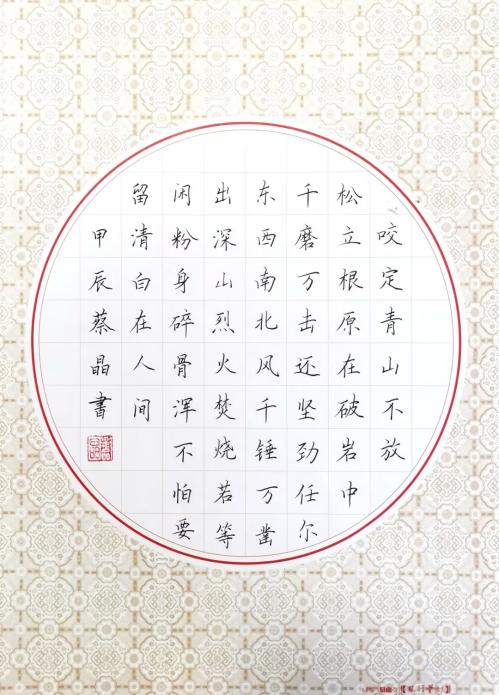 咬定青山不放
松立根原在破岩中
千磨万击还坚劲任尔
东西南北风千锤万凿
出深山烈火焚烧若等
闲粉身碎骨浑不怕要
留清白在人间
甲辰蔡晶書